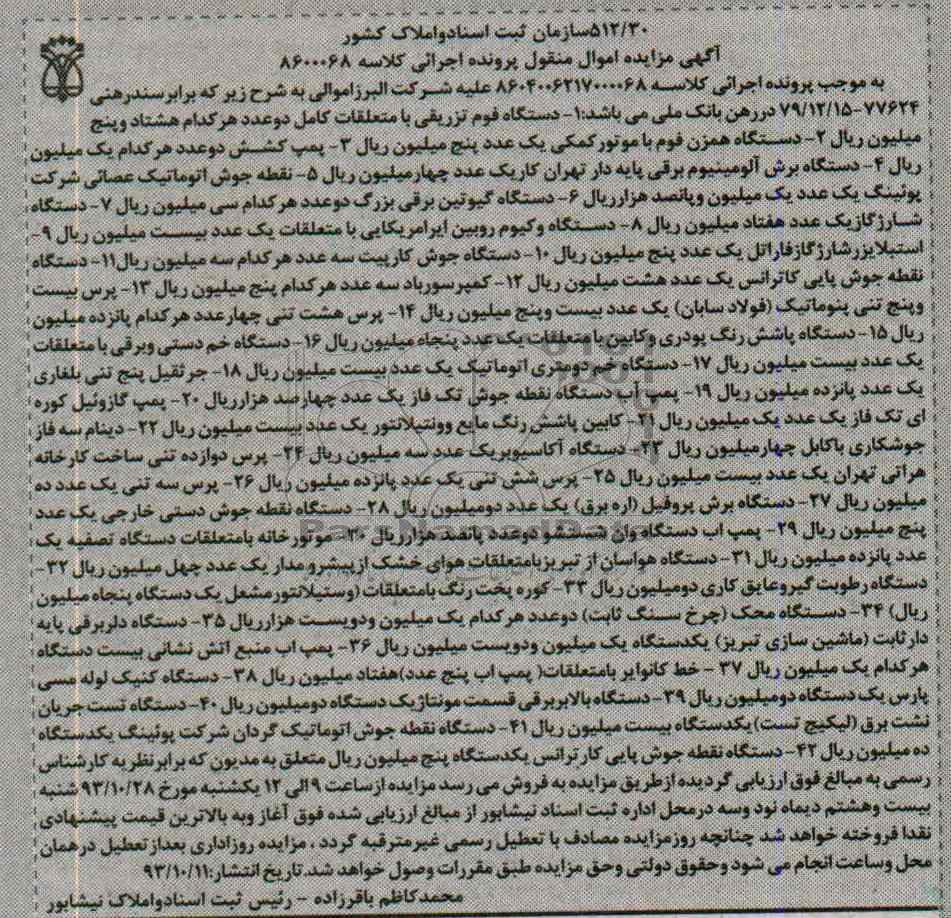 ۵۱۲/۳۰سازمان ثبت اسنادواملاک کشور
آگهی مزایده اموال منقول پرونده اجرائی کلاسه ۸۶۰۰۰۶۸
به موجب پرونده اجرائی کلاسه ۸۶۰۴۰۰۶۲۱۷۰۰۰۰۶۸ علیه شرکت البرزاموالی به شرح زیر که برابرسندرهنی
۷۷۶۲۴-۷۹/۱۲/۱۵ دررهن بانک ملی می باشد:۱- دستگاه فوم تزریقی با متعلقات کامل دوعدد هرکدام هشتاد وپنج
میلیون ریال ۲- دستگاه همزن فوم با موتورکمکی یک عدد پنج میلیون ریال ۳- پمپ کشش دوعدد هرکدام یک میلیون
ریال ۴- دستگاه برش آلومینیوم برقی پایه دار تهران کاریک عدد چهارمیلیون ریال ۵- نقطه جوش اتوماتیک عصائی شرکت
پوئینگ یک عدد یک میلیون وپانصد هزارریال ۶- دستگاه گیوتین برقی بزرگ دوعدد هرکدام سی میلیون ریال ۷- دستگاه
شارژگازیک عدد هفتاد میلیون ریال ۸- دستگاه وکیوم روبین ایرامریکایی با متعلقات یک عدد بیست میلیون ریال ۹-
استبلایزرشارژگازفاراتل یک عدد پنج میلیون ریال ۱۰- دستگاه جوش کارپیت سه عدد هرکدام سه میلیون ریال۱۱- دستگاه
نقطه جوش پایی کاترانس یک عدد هشت میلیون ریال ۱۲- کمپرسورباد سه عدد هرکدام پنج میلیون ریال ۱۳- پرس بیست
وپنج تنی پنوماتیک (فولادسابان) یک عدد بیست وپنج میلیون ریال ۱۴- پرس هشت تنی چهارعدد هرکدام پانزده میلیون
ریال ۱۵- دستگاه پاشش رنگ پودری وکابین با متعلقات یک عدد پنجاه میلیون ریال ۱۶- دستگاه خم دستی وبرقی با متعلقات
یک عدد بیست میلیون ریال ۱۷- دستگاه خم دومتری اتوماتیک یک عدد بیست میلیون ریال ۱۸- جرثقیل پنج تنی بلغاری
یک عدد پانزده میلیون ریال ۱۹- پمپ آب دستگاه نقطه جوش تک فاز یک عدد چهارصد هزارریال ۲۰- پمپ گازوئیل کوره
ای تک فاز یک عدد یک میلیون ریال ۲۱- کابین پاشش رنگ مایع وونتیلانتور یک عدد بیست میلیون ریال ۲۲- دینام سه فاز
جوشکاری باکابل چهارمیلیون ریال ۲۳- دستگاه آکاسیوبریک عدد سه میلیون ریال ۲۴- پرس دوازده تنی ساخت کارخانه
هراتی تهران یک عدد بیست میلیون ریال ۲۵- پرس شش تنی یک عدد پانزده میلیون ریال ۲۶- پرس سه تنی یک عدد ده
میلیون ریال ۲۷- دستگاه برش پروفیل (اره برق) یک عدد دومیلیون ریال ۲۸- دستگاه نقطه جوش دستی خارجی یک عدد
پنج میلیون ریال ۲۹- پمپ اب دستگاه وان شستشو دوعدد پانصد هزارریال ۳۰- موتورخانه بامتعلقات دستگاه تصفیه یک
عدد پانزده میلیون ریال ۳۱- دستگاه هواسان از تبریزبامتعلقات هوای خشک ازپیشرو مدار یک عدد چهل میلیون ریال ۳۲-
دستگاه رطوبت گیروعایق کاری دومیلیون ریال ۳۳- کوره پخت رنگ بامتعلقات (وستیلانتورمشعل یک دستگاه پنجاه میلیون
ریال) ۳۴- دستگاه محک (چرخ سنگ ثابت) دوعدد هرکدام یک میلیون ودویست هزارریال ۳۵- دستگاه دلربرقی پایه
دارثابت (ماشین سازی تبریز) یکدستگاه یک میلیون ودویست میلیون ریال ۳۶- پمپ اب منبع اتش نشانی بیست دستگاه
هرکدام یک میلیون ریال ۳۷ - خط کانوایر بامتعلقات( پمپ اب پنج عدد)هفتاد میلیون ریال ۳۸- دستگاه کنیک لوله مسی
پارس یک دستگاه دومیلیون ریال ۳۹- دستگاه بالابربرقی قسمت مونتاژیک دستگاه دومیلیون ریال ۴۰- دستگاه تست جریان
نشت برق (لیکیج تست)یکدستگاه بیست میلیون ریال ۴۱- دستگاه نقطه جوش اتوماتیک گردان شرکت پوئینگ یکدستگاه
ده میلیون ریال ۴۲- دستگاه نقطه جوش پایی کارترانس یکدستگاه پنج میلیون ریال متعلق به مدیون که برابرنظریه کارشناس
رسمی به مبالغ فوق ارزیابی گردیده ازطریق مزایده به فروش می رسد مزایده ازساعت ۹الی ۱۲ یکشنبه مورخ ۹۳/۱۰/۲۸ شنبه
بیست وهشتم دیماه نود وسه درمحل اداره ثبت اسناد نیشابور از مبالغ ارزیابی شده فوق آغاز وبه بالاترین قیمت پیشنهادی
نقدا فروخته خواهد شد چنانچه روزمزایده مصادف با تعطیل رسمی غیرمترقبه گردد ، مزایده روزاداری بعدازتعطیل درهمان
محل وساعت انجام می شود وحقوق دولتی وحق مزایده طبق مقررات وصول خواهد شد.تاریخ انتشار:۹۳/۱۰/۱۱
محمدکاظم باقرزاده - رئیس ثبت اسنادواملاک نیشابور
ParsNamadData